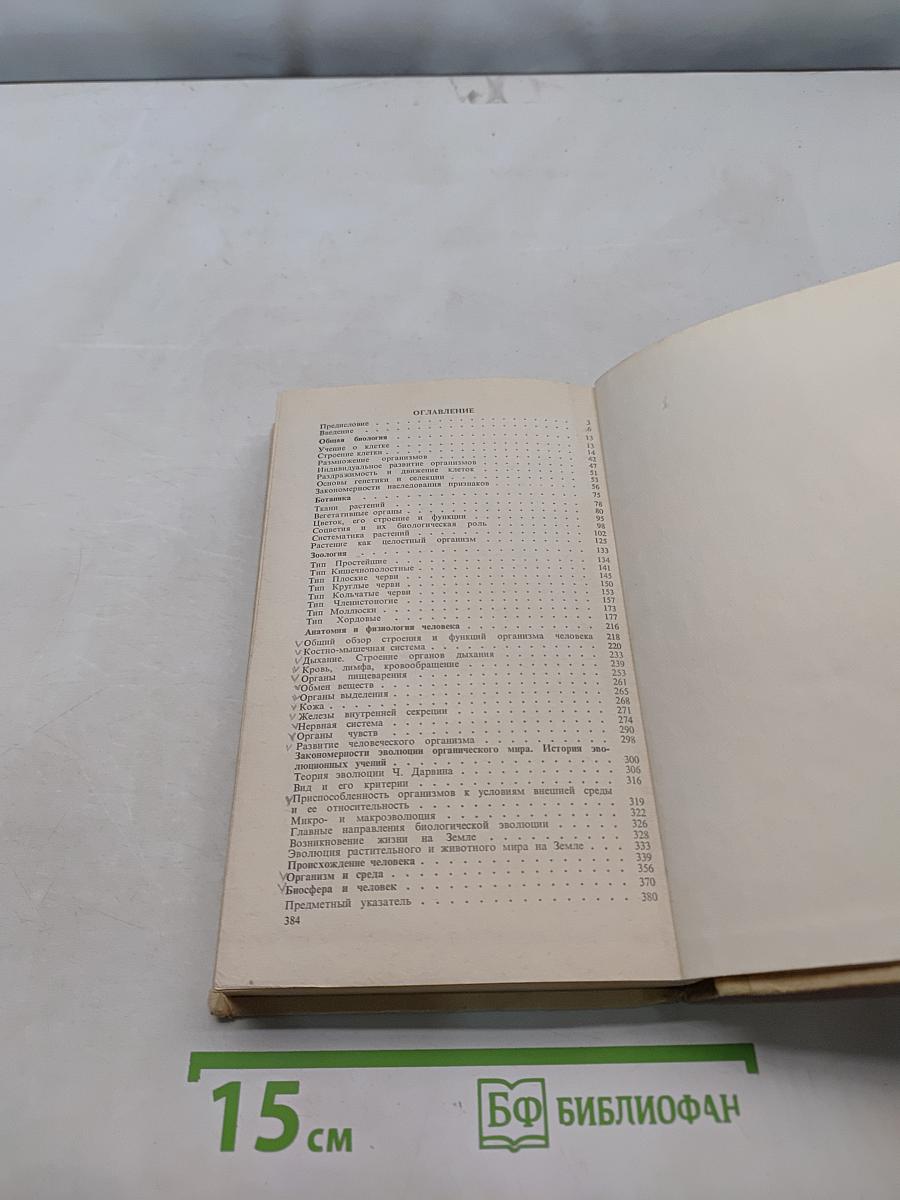 ОГЛАВЛЕНИЕ
Предисловие . . . 3
Введение . . . 6
Общая биология . . . 13
Учение о клетке . . . 13
Строение клетки . . . 14
Размножение организмов . . . 42
Индивидуальное развитие организмов . . . 47
Раздражимость и движение клеток . . . 51
Основы генетики и селекции . . . 53
Закономерности наследования признаков . . . 56
Ботаника . . . 75
Ткани растений . . . 78
Вегетативные органы . . . 80
Цветок, его строение и функции . . . 95
Соцветия и их биологическая роль . . . 98
Систематика растений . . . 102
Растение как целостный организм . . . 125
Зоология . . . 133
Тип Простейшие . . . 134
Тип Кишечнополостные . . . 141
Тип Плоские черви . . . 145
Тип Круглые черви . . . 150
Тип Кольчатые черви . . . 153
Тип Членистоногие . . . 157
Тип Моллюски . . . 173
Тип Хордовые . . . 177
Анатомия и физиология человека . . . 216
Общий обзор строения и функций организма человека 218
Костно-мышечная система . . . 220
Дыхание. Строение органов дыхания . . . 233
Кровь, лимфа, кровообращение . . . 239
Органы пищеварения . . . 253
Обмен веществ . . . 261
Органы выделения . . . 265
Кожа . . . 268
Железы внутренней секреции . . . 271
Нервная система . . . 274
Органы чувств . . . 290
Развитие человеческого организма . . . 298
Закономерности эволюции органического мира. История эво-
люционных учений . . . 300
Теория эволюции Ч. Дарвина . . . 306
Вид и его критерии . . . 316
Приспособленность организмов к условиям внешней среды
и ее относительность . . . 319
Микро- и макроэволюция . . . 322
Главные направления биологической эволюции . . . 326
Возникновение жизни на Земле . . . 328
Эволюция растительного и животного мира на Земле . . . 333
Происхождение человека . . . 339
Организм и среда . . . 356
Биосфера и человек . . . 370
Предметный указатель . . . 380
384
15 см
БФ БИБЛИОФАН